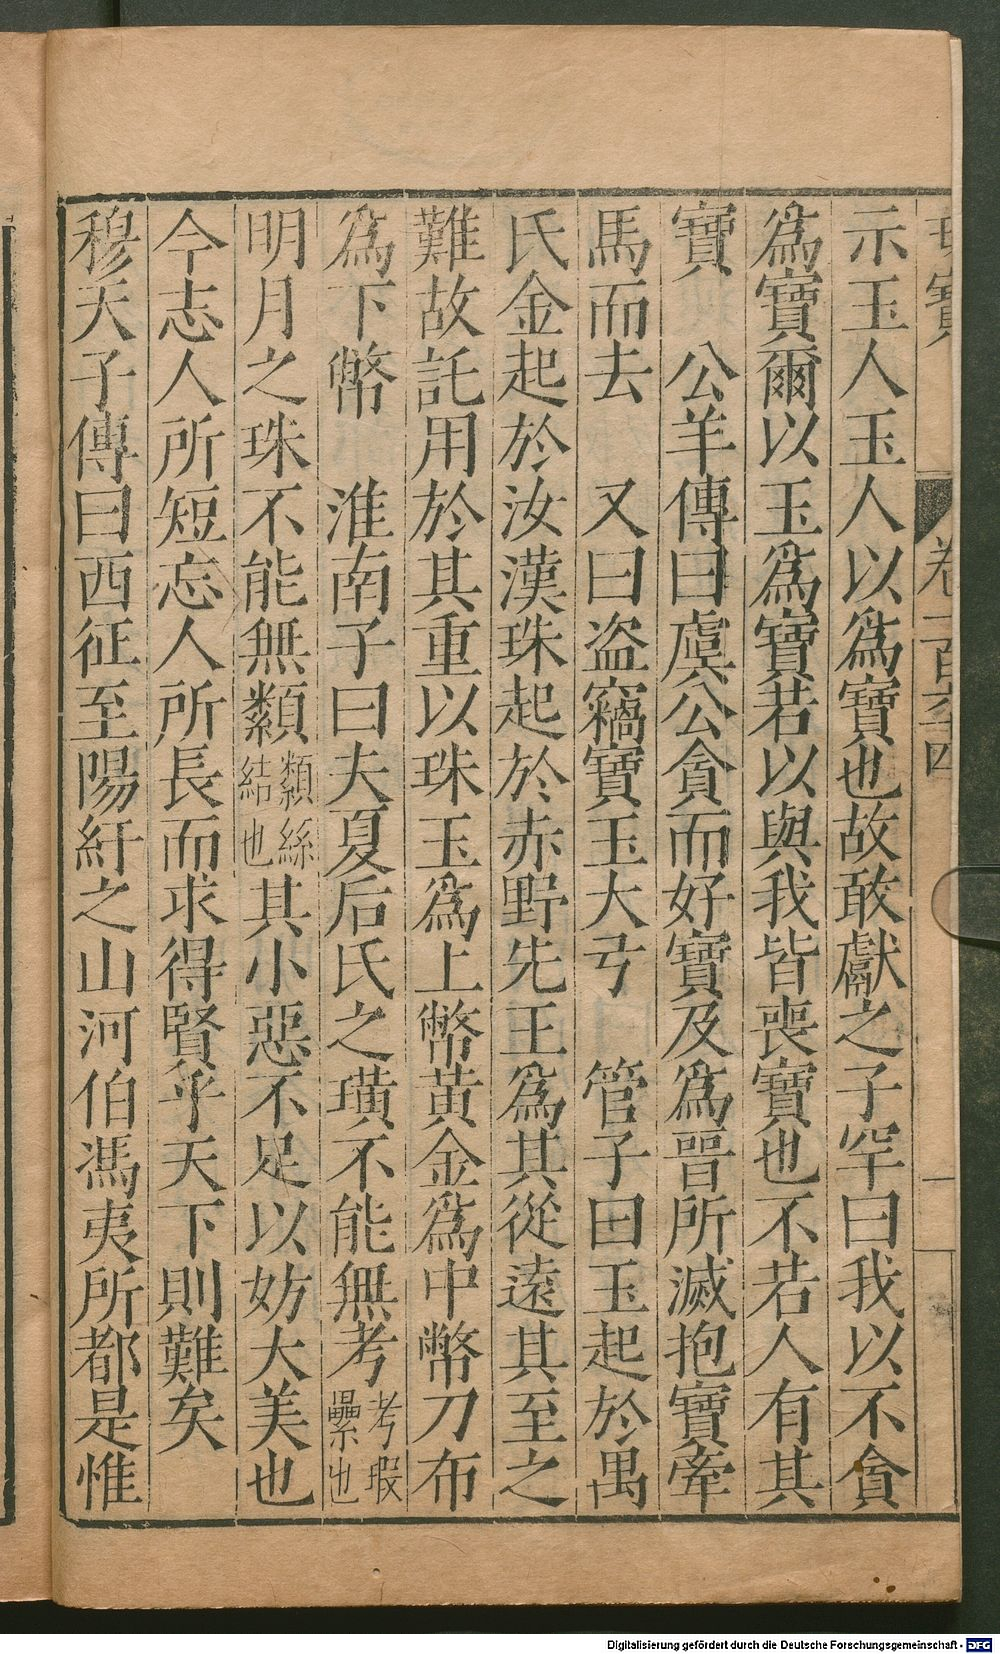 寶 卷一百六十四
示玉人玉人以爲寶也故敢獻之子罕曰我以不貪
爲寶爾以玉爲寶若以與我皆喪寶也不若人有其
寶 公羊傳曰虞公貪而好寶及爲晉所滅抱寶牽
馬而去 又曰盗竊寶玉大弓 管子曰玉起於禺
氏金起於汝漢珠起於赤野先王爲其從遠其至之
難故託用於其重以珠玉爲上幣黄金爲中幣刀布
爲下幣 淮南子曰夫夏后氏之璜不能無考考瑕釁也
明月之珠不能無纇纇絲結也其小惡不足以妨大美也
今志人所短忘人所長而求得賢乎天下則難矣
穆天子傳曰西征至陽紆之山河伯馮夷所都是惟
Digitalisierung gefördert durch die Deutsche Forschungsgemeinschaft - DFG